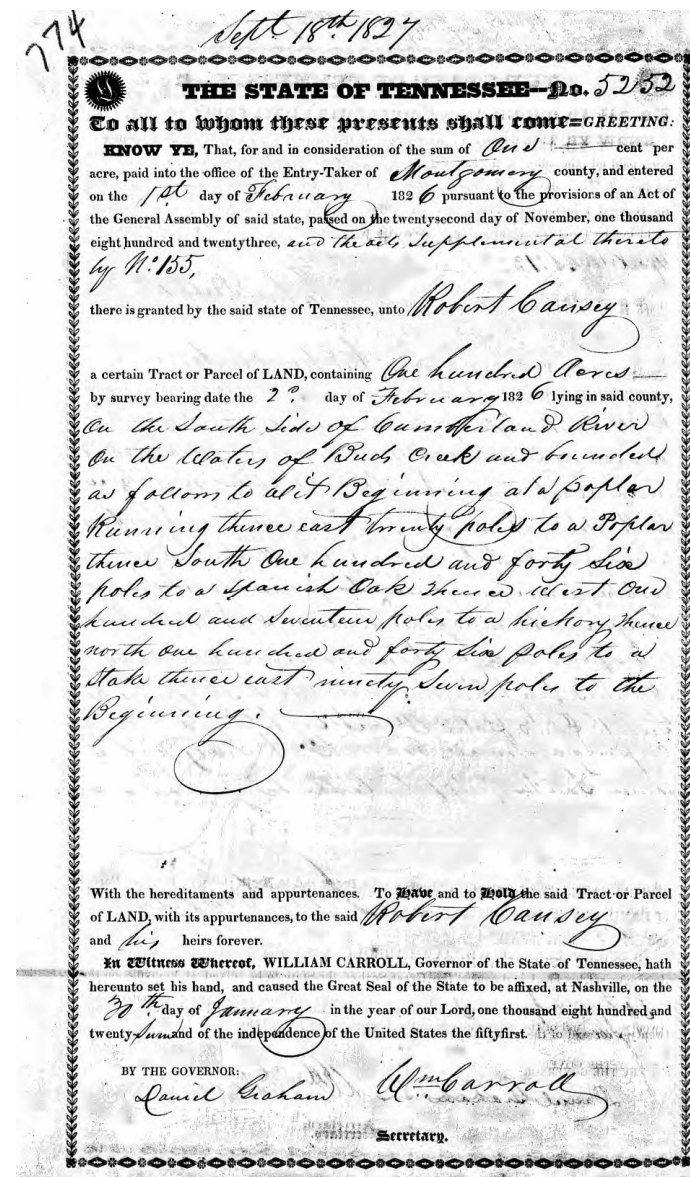 774
Sept. 18th 1827
THE STATE OF TENNESSEE--No. 5252
To all to whom these presents shall come=GREETING:
KNOW YE, That, for and in consideration of the sum of One cent per
acre, paid into the office of the Entry-Taker of Montgomery county, and entered
on the 1st day of February 1826 pursuant to the provisions of an Act of
the General Assembly of said state, passed on the twentysecond day of November, one thousand
eight hundred and twentythree, and the acts Supplemental thereto
by No. 155,
there is granted by the said state of Tennessee, unto Robert Causey
a certain Tract or Parcel of LAND, containing One hundred Acres
by survey bearing date the 2d. day of February 1826 lying in said county,
On the South Side of Cumberland River
On the Waters of Buds Creek and bounded
as follows to wit Beginning at a poplar
Running thence east twenty poles to a Poplar
thence South One hundred and forty Six
poles to a Spanish Oak thence West One
hundred and Seventeen poles to a hickory thence
north one hundred and forty Six poles to a
Stake thence east ninety Seven poles to the
Beginning.
With the hereditaments and appurtenances. To Have and to Hold the said Tract or Parcel
of LAND, with its appurtenances, to the said Robert Causey
and his heirs forever.
In Witness Whereof, WILLIAM CARROLL, Governor of the State of Tennessee, hath
hereunto set his hand, and caused the Great Seal of the State to be affixed, at Nashville, on the
30th day of January in the year of our Lord, one thousand eight hundred and
twenty and of the independence of the United States the fiftyfirst.
BY THE GOVERNOR:
Daniel Graham Wm Carroll
Secretary.